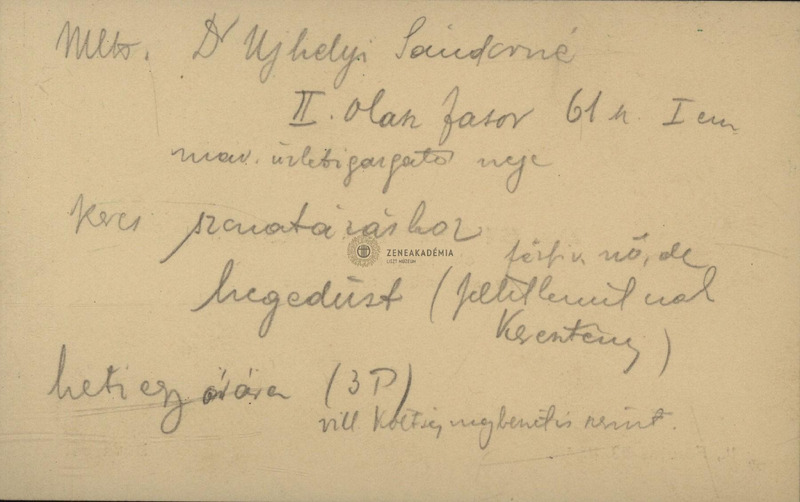 Mlts. Dr Ujhelyi Sándorné
II. Olasz fasor 61 sz. I em
máv. üzletigazgató neje
keres szonatázáshoz
ZENEAKADÉMIA
LISZT MÚZEUM
férfi v. nő, de
hegedűst (feltétlenül
Keresztény)
heti egy órára (3 P)
vill. költség megbeszélés szerint.